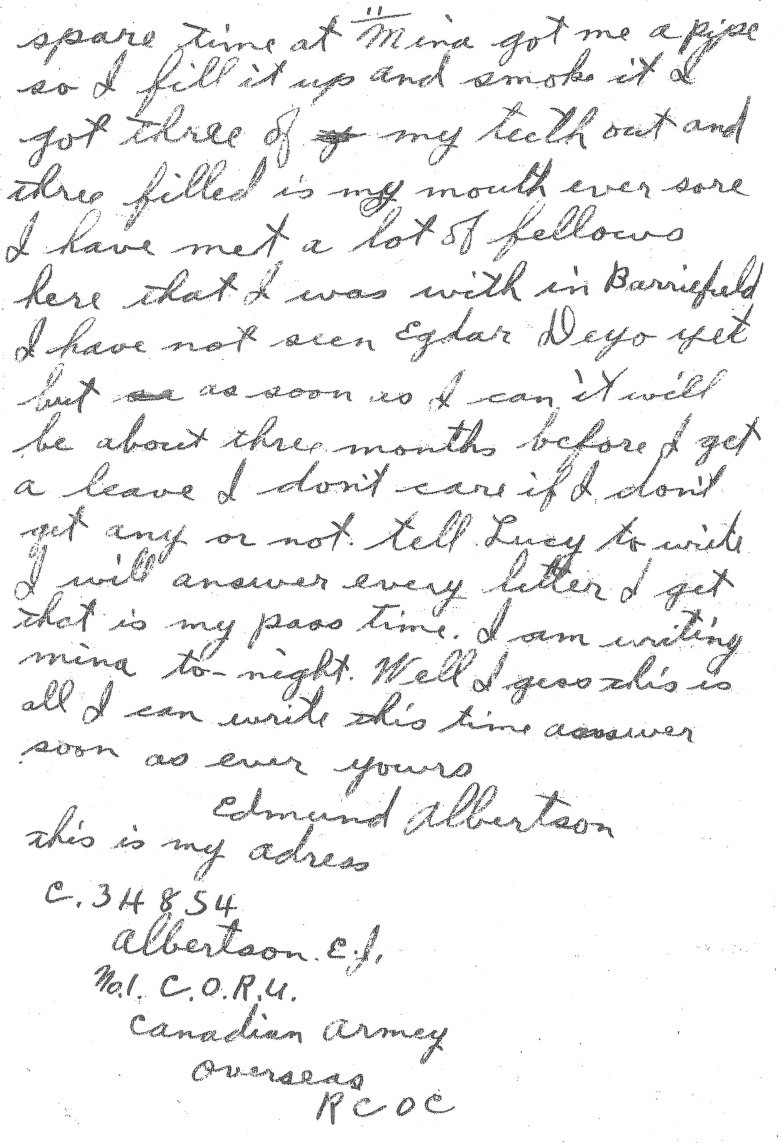 "
spare time at Mina got me a pipe
so I fill it up and smoke it I
got three of my teeth out and
three filled is my mouth ever sore
I have met a lot of fellows
here that I was with in Barriefield
I have not seen Egdar Deyo yet
but as soon as I can it will
be about three months before I get
a leave I don't care if I don't
get any or not. tell Lucy to write
I will answer every letter I get
that is my pass time. I am writing
mina to-night. Well I gess this is
all I can write this time answer
soon as ever yours
Edmund Albertson
this is my adress
C. 34854
Albertson. E.J.
No.1. C.O.R.U.
Canadian Armey
Overseas
RCOC